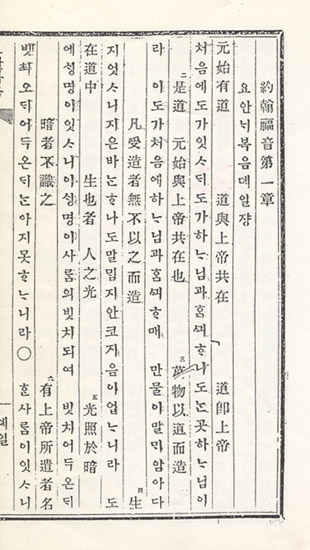 約翰福音第一章
요안늬복음뎨일쟝
元始有道 道與上帝共在 道卽上帝
처음에도가잇스되도가하느님과홈ᄭᅴᄒᆞ니도는곳하느님이
二是道 元始與上帝共在也 三萬物以道而造
라 이도가처음에하느님과홈ᄭᅴᄒᆞ매 만물이말믜암아다
凡受造者無不以之而造 四生
지엇스니지은바는ᄒᆞ나도말믜지안코지음이업느니라 도
在道中 生也者 人之光 五光照於暗
에ᄉᆡᆼ명이잇스니이ᄉᆡᆼ명이사ᄅᆞᆷ의빗치되여 빗치어두온ᄃᆡ
暗者不識之 六有上帝所遣者名
빗최오ᄃᆡ어두온ᄃᆡ는아지못ᄒᆞ느니라○ ᄒᆞᆫ사ᄅᆞᆷ이잇스니
예일